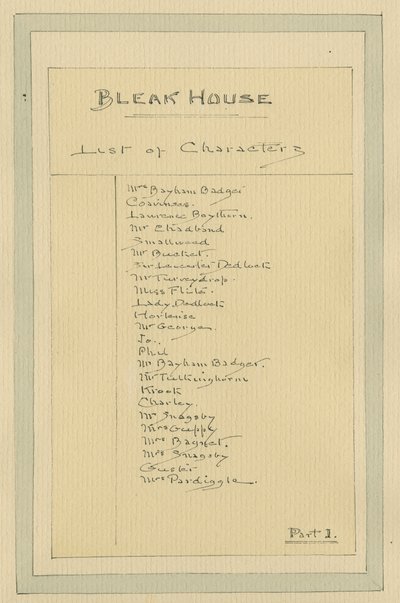 BLEAK HOUSE
List of Characters
Mrs Bayham Badger
Coavinses.
Lawrence Boythorn.
Mr Chadband
Smallweed
Mr Bucket.
Sir Leicester Dedlock
Mr Turveydrop.
Miss Flite.
Lady Dedlock
Hortense
Mr George.
Jo.
Phil
Mr Bayham Badger.
Mr Tulkinghorn
Krook
Charley.
Mr Snagsby
Mrs Guppy
Mrs Bagnet.
Mrs Snagsby
Guster
Mrs Pardiggle.
Part 1.